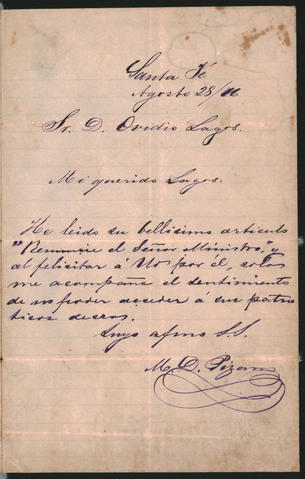 Santa Fé
Agosto 28/86
Sr. D. Ovidio Lagos.
Mi querido Lagos.
He leido su bellisimo articulo
"Renuncie el Señor Ministro," y
al felicitar á Vd por él, solo
me acompaña el sentimiento
de no poder acceder á sus patrio
ticos deseos.
Suyo afmo S.S.
M. D. Pizarro